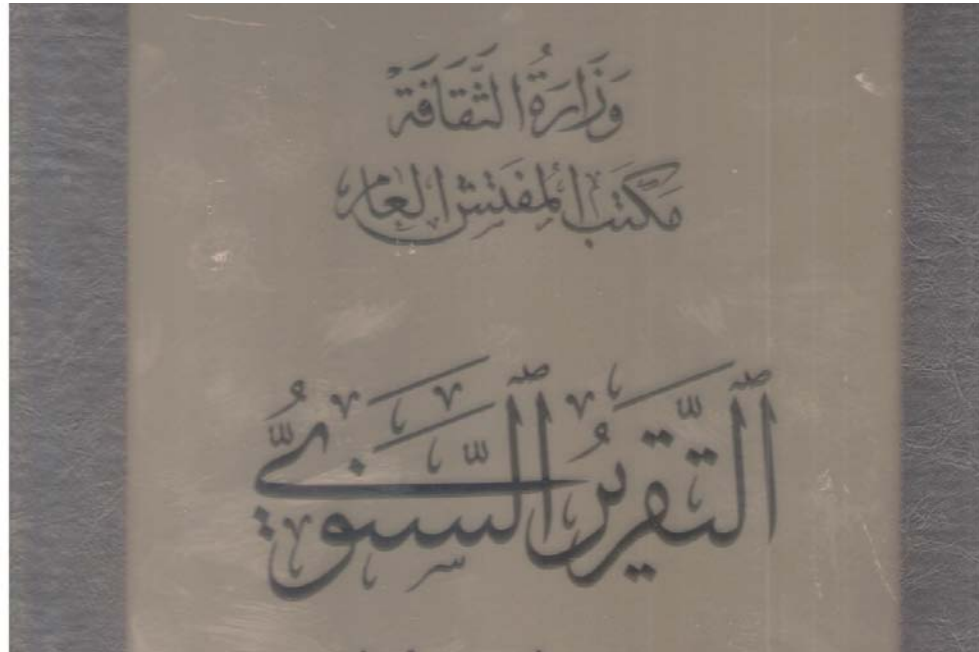 وَزَارَةُ الثَّقَافَة
مَكتَب المُفَتش العَام
ٱلتَّقرِيرُ ٱلسَّنَوِيُّ